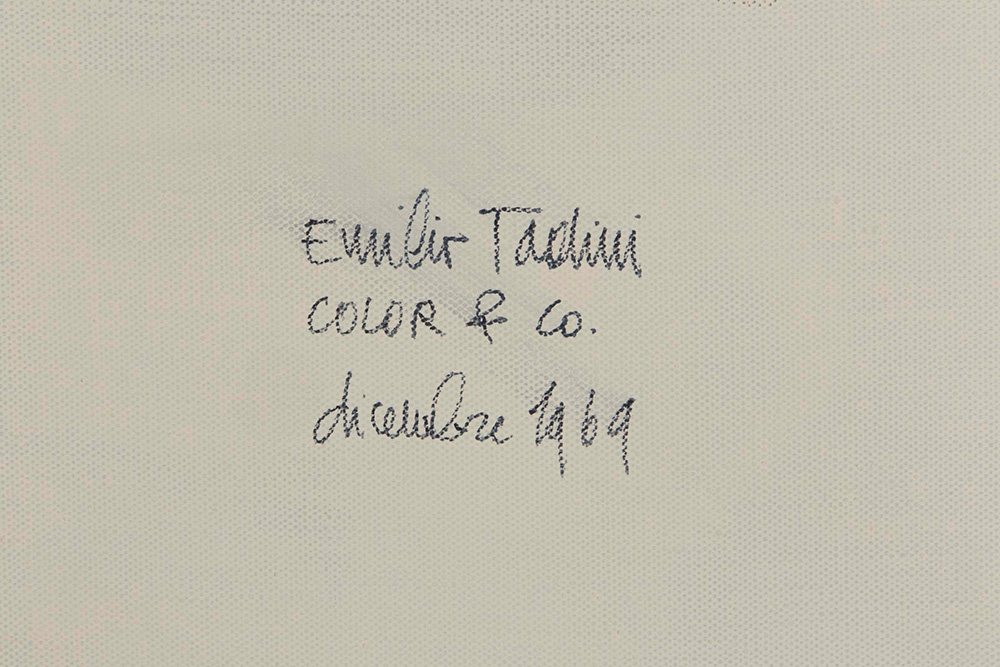 Emilio Tadini
COLOR & Co.
dicembre 1969